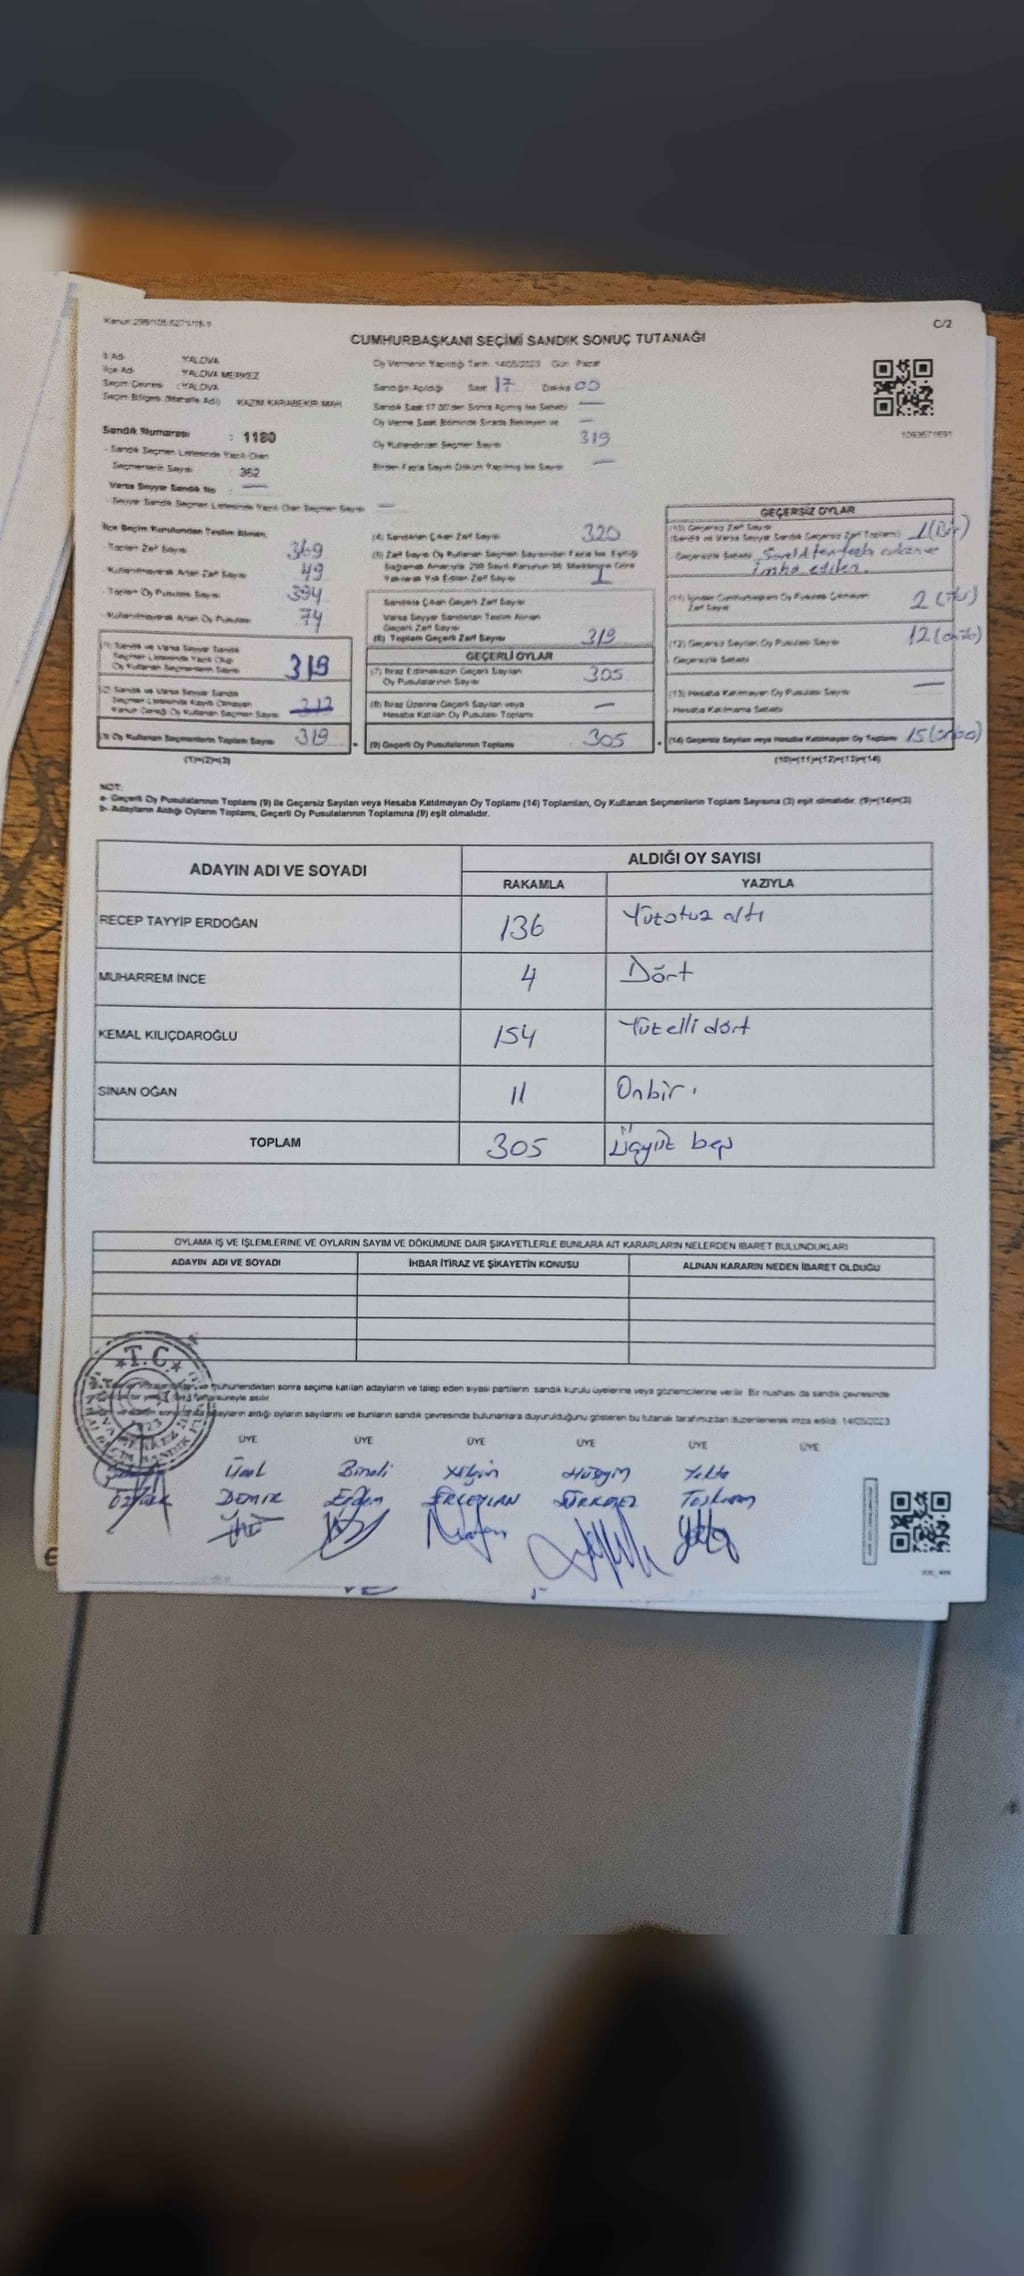 C/2
CUMHURBAŞKANI SEÇİMİ SANDIK SONUÇ TUTANAĞI
İl Adı : YALOVA
İlçe Adı : YALOVA MERKEZ
Seçim Çevresi : YALOVA
Seçim Bölgesi (Mahalle Adı) : KAZIM KARABEKİR MAH.
Sandık Numarası : 1180
- Sandık Seçmen Listesinde Yazılı Olan
Seçmenlerin Sayısı : 362
Varsa Seyyar Sandık No : —
- Seyyar Sandık Seçmen Listesinde Yazılı Olan Seçmen Sayısı —
Oy Vermenin Yapıldığı Tarih: 14/05/2023 Gün: Pazar
Sandığın Açıldığı Saat 17 Dakika 00
Sandık Saat 17.00'den Sonra Açılmış İse Sebebi —
Oy Verme Saati Bitiminde Sırada Bekleyen ve —
Oy Kullandırılan Seçmen Sayısı 319
Birden Fazla Sayım Döküm Yapılmış İse Sayısı —
İlçe Seçim Kurulundan Teslim Alınan;
Toplam Zarf Sayısı 369
Kullanılmayarak Artan Zarf Sayısı 49
Toplam Oy Pusulası Sayısı 394
Kullanılmayarak Artan Oy Pusulası 74
(1) Sandık ve Varsa Seyyar Sandık
Seçmen Listesinde Yazılı Olup
Oy Kullanan Seçmenlerin Sayısı 319
(2) Sandık ve Varsa Seyyar Sandık
Seçmen Listesinde Kayıtlı Olmayan
Kanun Gereği Oy Kullanan Seçmen Sayısı
(3) Oy Kullanan Seçmenlerin Toplam Sayısı 319
(1)+(2)=(3)
(4) Sandıktan Çıkan Zarf Sayısı 320
(5) Zarf Sayısı Oy Kullanan Seçmen Sayısından Fazla İse Eşitliği
Sağlamak Amacıyla 298 Sayılı Kanunun 98. Maddesine Göre
Yakılarak Yok Edilen Zarf Sayısı 1
Sandıkta Çıkan Geçerli Zarf Sayısı
Varsa Seyyar Sandıktan Teslim Alınan
Geçerli Zarf Sayısı
(6) Toplam Geçerli Zarf Sayısı 319
GEÇERLİ OYLAR
(7) İtiraz Edilmeksizin Geçerli Sayılan
Oy Pusulalarının Sayısı 305
(8) İtiraz Üzerine Geçerli Sayılan veya
Hesaba Katılan Oy Pusulası Toplamı —
(9) Geçerli Oy Pusulalarının Toplamı 305
GEÇERSİZ OYLAR
(10) Geçersiz Zarf Sayısı
(Sandık ve Varsa Seyyar Sandık Geçersiz Zarf Toplamı) 1 (Bir)
Geçersizlik Sebebi
imha edilen.
(11) İçinden Cumhurbaşkanı Oy Pusulası Çıkmayan
Zarf Sayısı 2 (iki)
(12) Geçersiz Sayılan Oy Pusulası Sayısı 12 (oniki)
Geçersizlik Sebebi
(13) Hesaba Katılmayan Oy Pusulası Sayısı —
Hesaba Katılmama Sebebi
(14) Geçersiz Sayılan veya Hesaba Katılmayan Oy Toplamı 15
(10)+(11)+(12)+(13)=(14)
NOT:
a- Geçerli Oy Pusulalarının Toplamı (9) ile Geçersiz Sayılan veya Hesaba Katılmayan Oy Toplamı (14) Toplamları, Oy Kullanan Seçmenlerin Toplam Sayısına (3) eşit olmalıdır. (9)+(14)=(3)
b- Adayların Aldığı Oyların Toplamı, Geçerli Oy Pusulalarının Toplamına (9) eşit olmalıdır.
ADAYIN ADI VE SOYADI ALDIĞI OY SAYISI
RAKAMLA YAZIYLA
RECEP TAYYİP ERDOĞAN 136 Yüzotuz altı
MUHARREM İNCE 4 Dört
KEMAL KILIÇDAROĞLU 154 Yüz elli dört
SİNAN OĞAN 11 Onbir.
TOPLAM 305 Üçyüz beş
OYLAMA İŞ VE İŞLEMLERİNE VE OYLARIN SAYIM VE DÖKÜMÜNE DAİR ŞİKAYETLERLE BUNLARA AİT KARARLARIN NELERDEN İBARET BULUNDUKLARI
ADAYIN ADI VE SOYADI İHBAR İTİRAZ VE ŞİKAYETİN KONUSU ALINAN KARARIN NEDEN İBARET OLDUĞU
T.C.
ve mühürlendikten sonra seçime katılan adayların ve talep eden siyasi partilerin sandık kurulu üyelerine veya gözlemcilerine verilir. Bir nüshası da sandık çevresinde
süreyle asılır.
adayların aldığı oyların sayılarını ve bunların sandık çevresinde bulunanlara duyurulduğunu gösteren bu tutanak tarafımızdan düzenlenerek imza edildi. 14/05/2023
ÜYE ÜYE ÜYE ÜYE ÜYE ÜYE
Ünal Binali Yalçın Hüseyin Yekta
ÖZTÜRK DEMİR Erdem ERCEYLAN Taşkıran